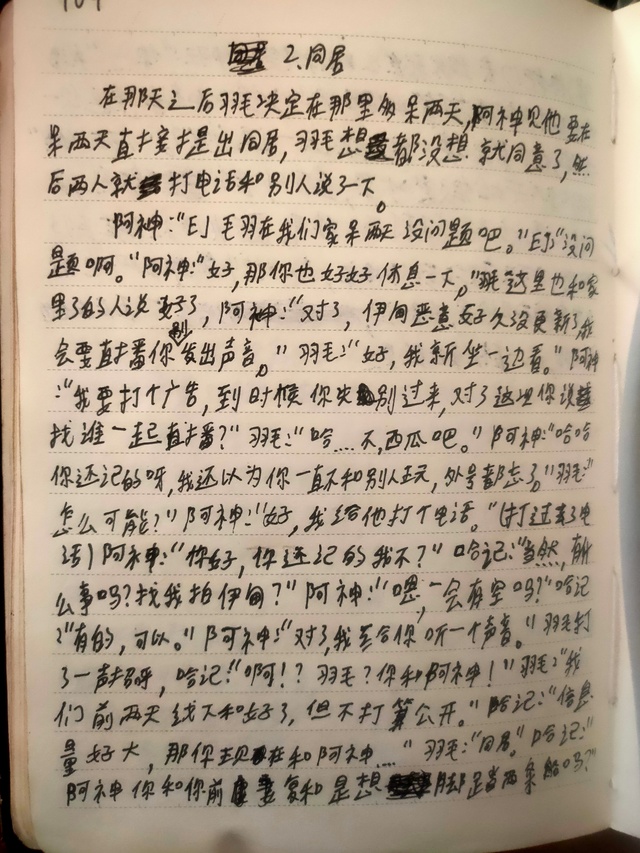 2、同居
在那天之后羽毛决定在那里多呆两天,阿神见他要在
呆两天直接提出同居,羽毛想都没想就同意了,然
后两人就打电话和别人说了一下。
阿神:“EJ毛羽在我们家呆两天没问题吧。”EJ:“没问
题啊。”阿神:“好,那你也好好休息一下。”羽毛这里也和家
里的人说好了,阿神:“对了,伊甸恶意好久没更新了我
会要直播你别发出声音。”羽毛:“好,我就坐一边看。”阿神
:“我要打个广告,到时候你先别过来,对了这里你说
找谁一起直播?”羽毛:“哈....不,西瓜吧。”阿神:“哈哈
你还记的呀,我还以为你一直不和别人玩,外号都忘了。”羽毛:“
怎么可能?”阿神:“好,我给他打个电话。”(打过去了电
话)阿神:“你好,你还记的我不?”哈记:“当然,有什
么事吗?找我拍伊甸?”阿神:“嗯,一会有空吗?”哈记
:“有的,可以。”阿神:“对了,我给你听一个声音。”羽毛打
了一声招呼,哈记:“啊!?羽毛?你和阿神!”羽毛:“我
们前两天线下和好了,但不打算公开。”哈记:“信息
量好大,那你现在和阿神....”羽毛:“同居。”哈记:“
阿神你和你前妻复和是想脚踏两条船吗?”